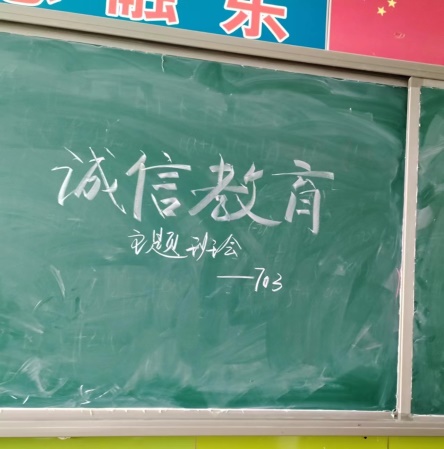 融乐
诚信教育
主题班会
—703